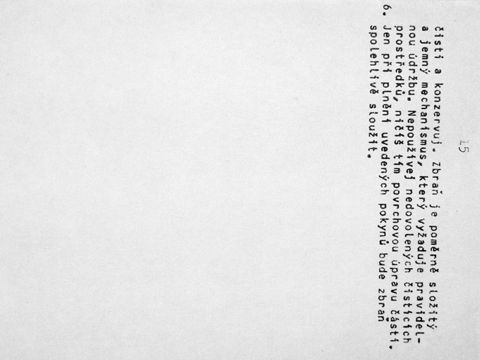 15
čisti a konzervuj. Zbraň je poměrně složitý
a jemný mechanismus, který vyžaduje pravidel-
nou údržbu. Nepoužívej nedovolených čisticích
prostředků, ničíš tím povrchovou úpravu částí.
6. Jen při plnění uvedených pokynů bude zbraň
spolehlivě sloužit.